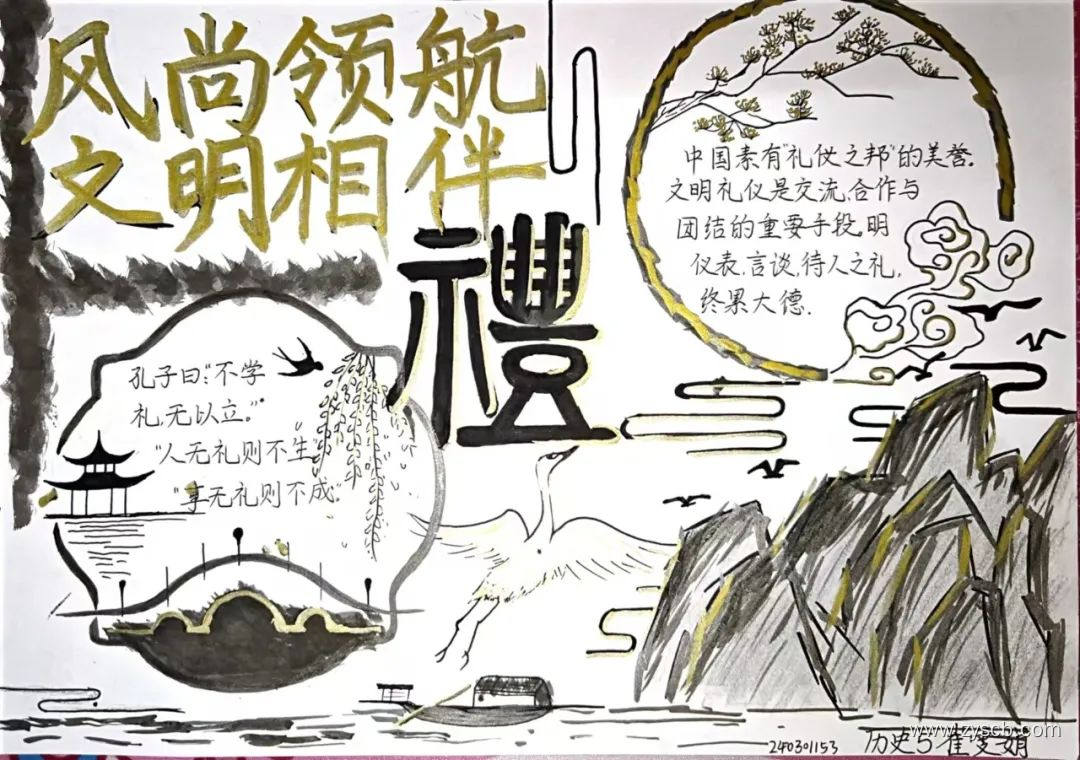 风尚领航
文明相伴
禮
中国素有"礼仪之邦"的美誉.
文明礼仪是交流,合作与
团结的重要手段,明
仪表,言谈,待人之礼,
终果大德.
孔子曰:"不学
礼,无以立."
"人无礼则不生
"事无礼则不成."
240301153 历史5 崔雯娟
www.zyscb.com